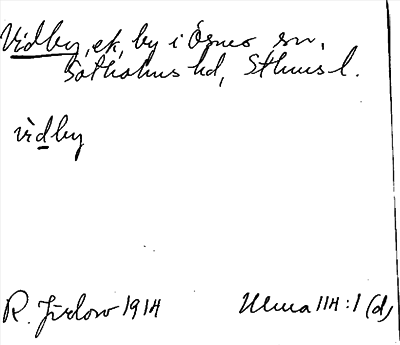 Vidby, ek, by i Ösmo sn,
Sotholms hd, Sthms l.
vìdby
R. Jirlow 1914 Ulma 114:1 (d)